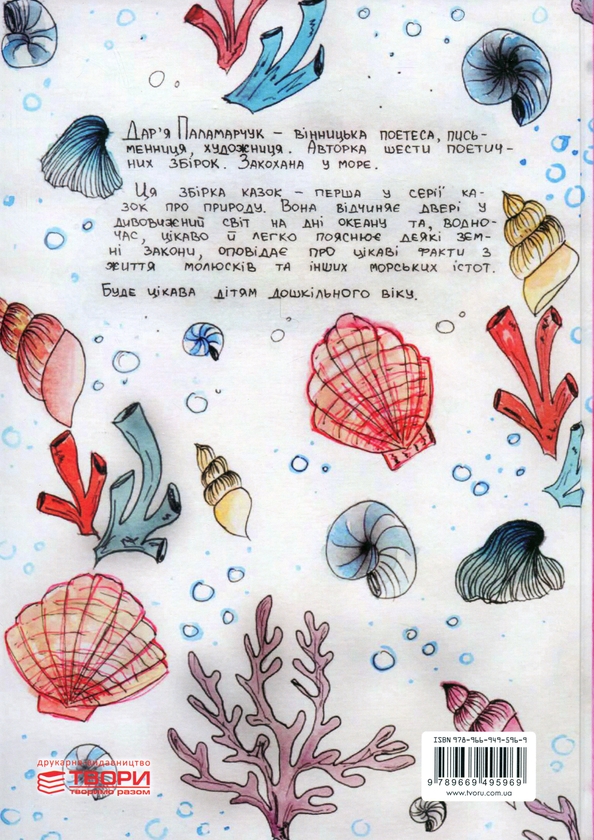 Дар'я Паламарчук – вінницька поетеса, пись-
менниця, художниця. Авторка шести поетич-
них збірок. Закохана у море.
Ця збірка казок – перша у серії ка-
зок про природу. Вона відчиняє двері у
дивовижний світ на дні океану та, водно-
час, цікаво й легко пояснює деякі зем-
ні закони, оповідає про цікаві факти з
життя молюсків та інших морських істот.
Буде цікава дітям дошкільного віку.
ISBN 978-966-949-596-9
9 789669 495969
www.tvoru.com.ua
друкарня видавництво
ТВОРИ
творимо разом